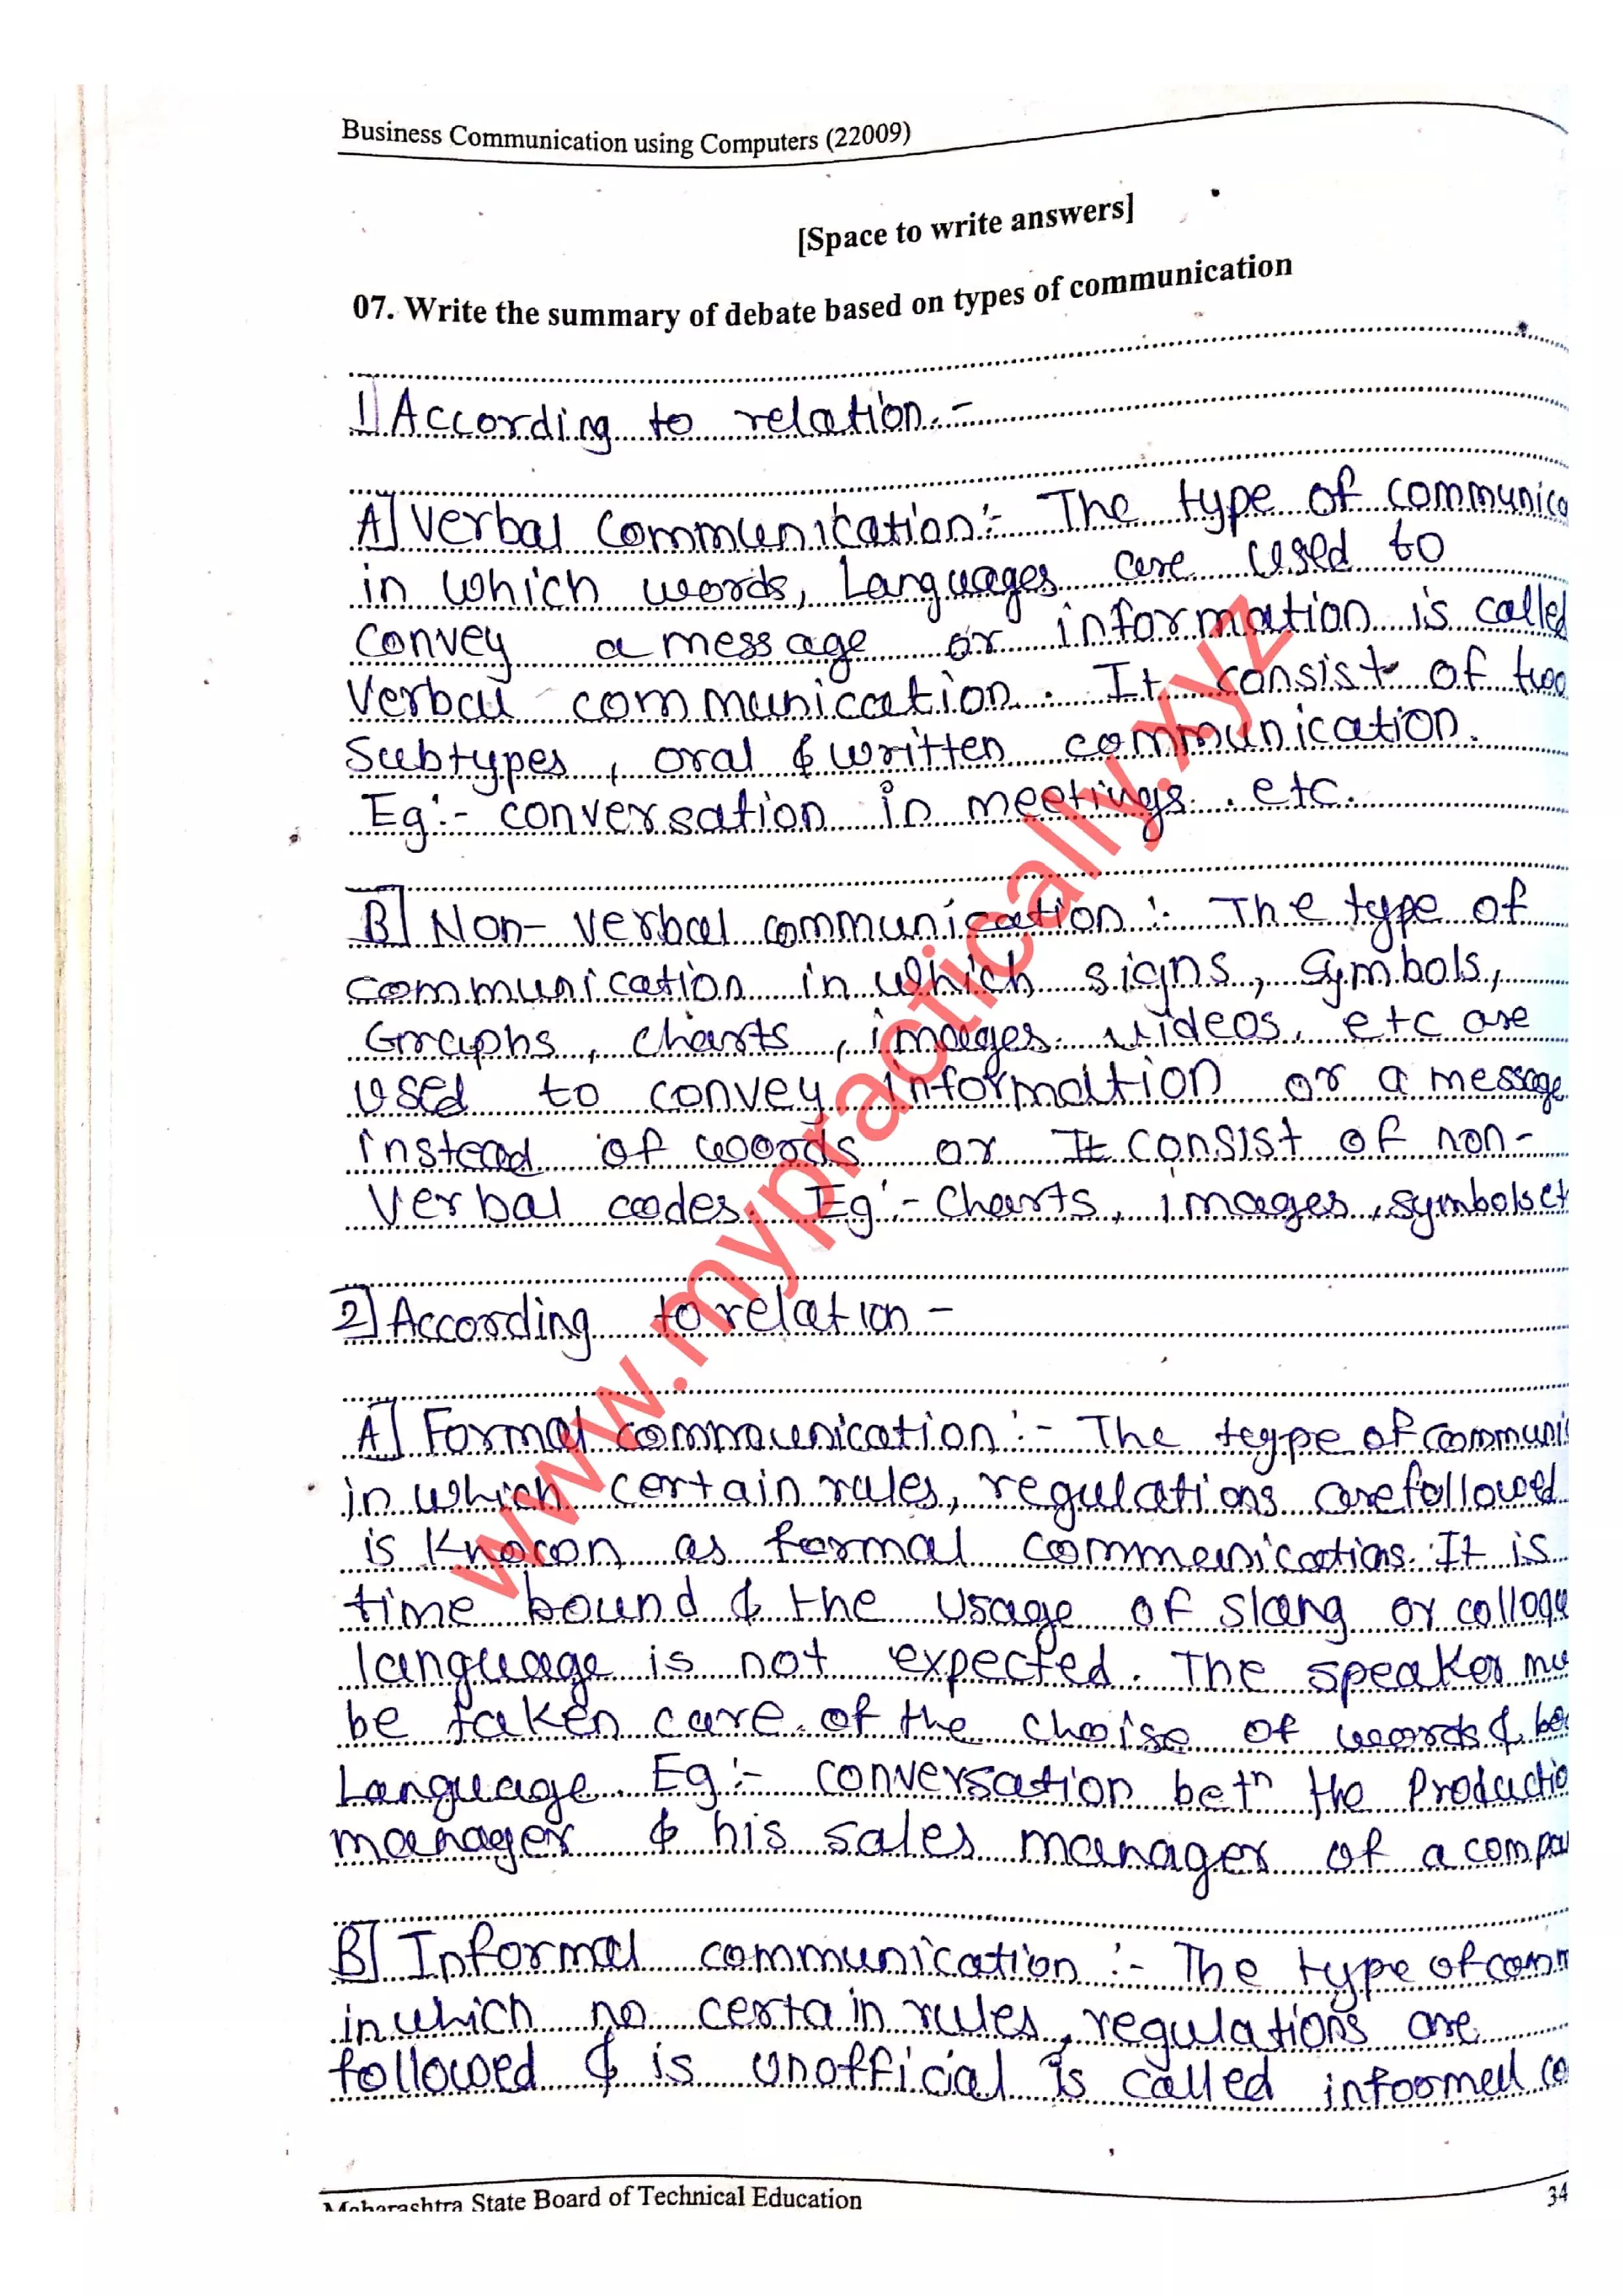 Business Communication using Computers (22009)
[Space to write answers]
07. Write the summary of debate based on types of communication
1] According to relation.-
A] Verbal communication:- The type of communica
in which words, Languages are used to
convey a message or information is called
Verbal communication. It consist of two
Subtypes, oral & written communication.
Eg:- conversation in meetings. etc.
B] Non-verbal communication:- The type of
communication in which signs, symbols,
Graphs, charts, images. videos, etc are
used to convey information or a message
instead of words or It consist of non-
Verbal codes. Eg:- Charts, images, symbols et
2] According to relation -
A] Formal communication:- The type of communi
in which certain rules, regulations are followed
is known as formal communications. It is
time bound & the usage of slang or colloqu
language is not expected. The speaker mu
be taken care of the choise of words & bo
Language. Eg:- conversation betn the Productio
manager & his sales manager of a compa
B] Informal communication:- The type of comm
in which no certain rules, regulations are
followed & is unofficial is called informal co
Maharashtra State Board of Technical Education
34
www.mypractically.xyz